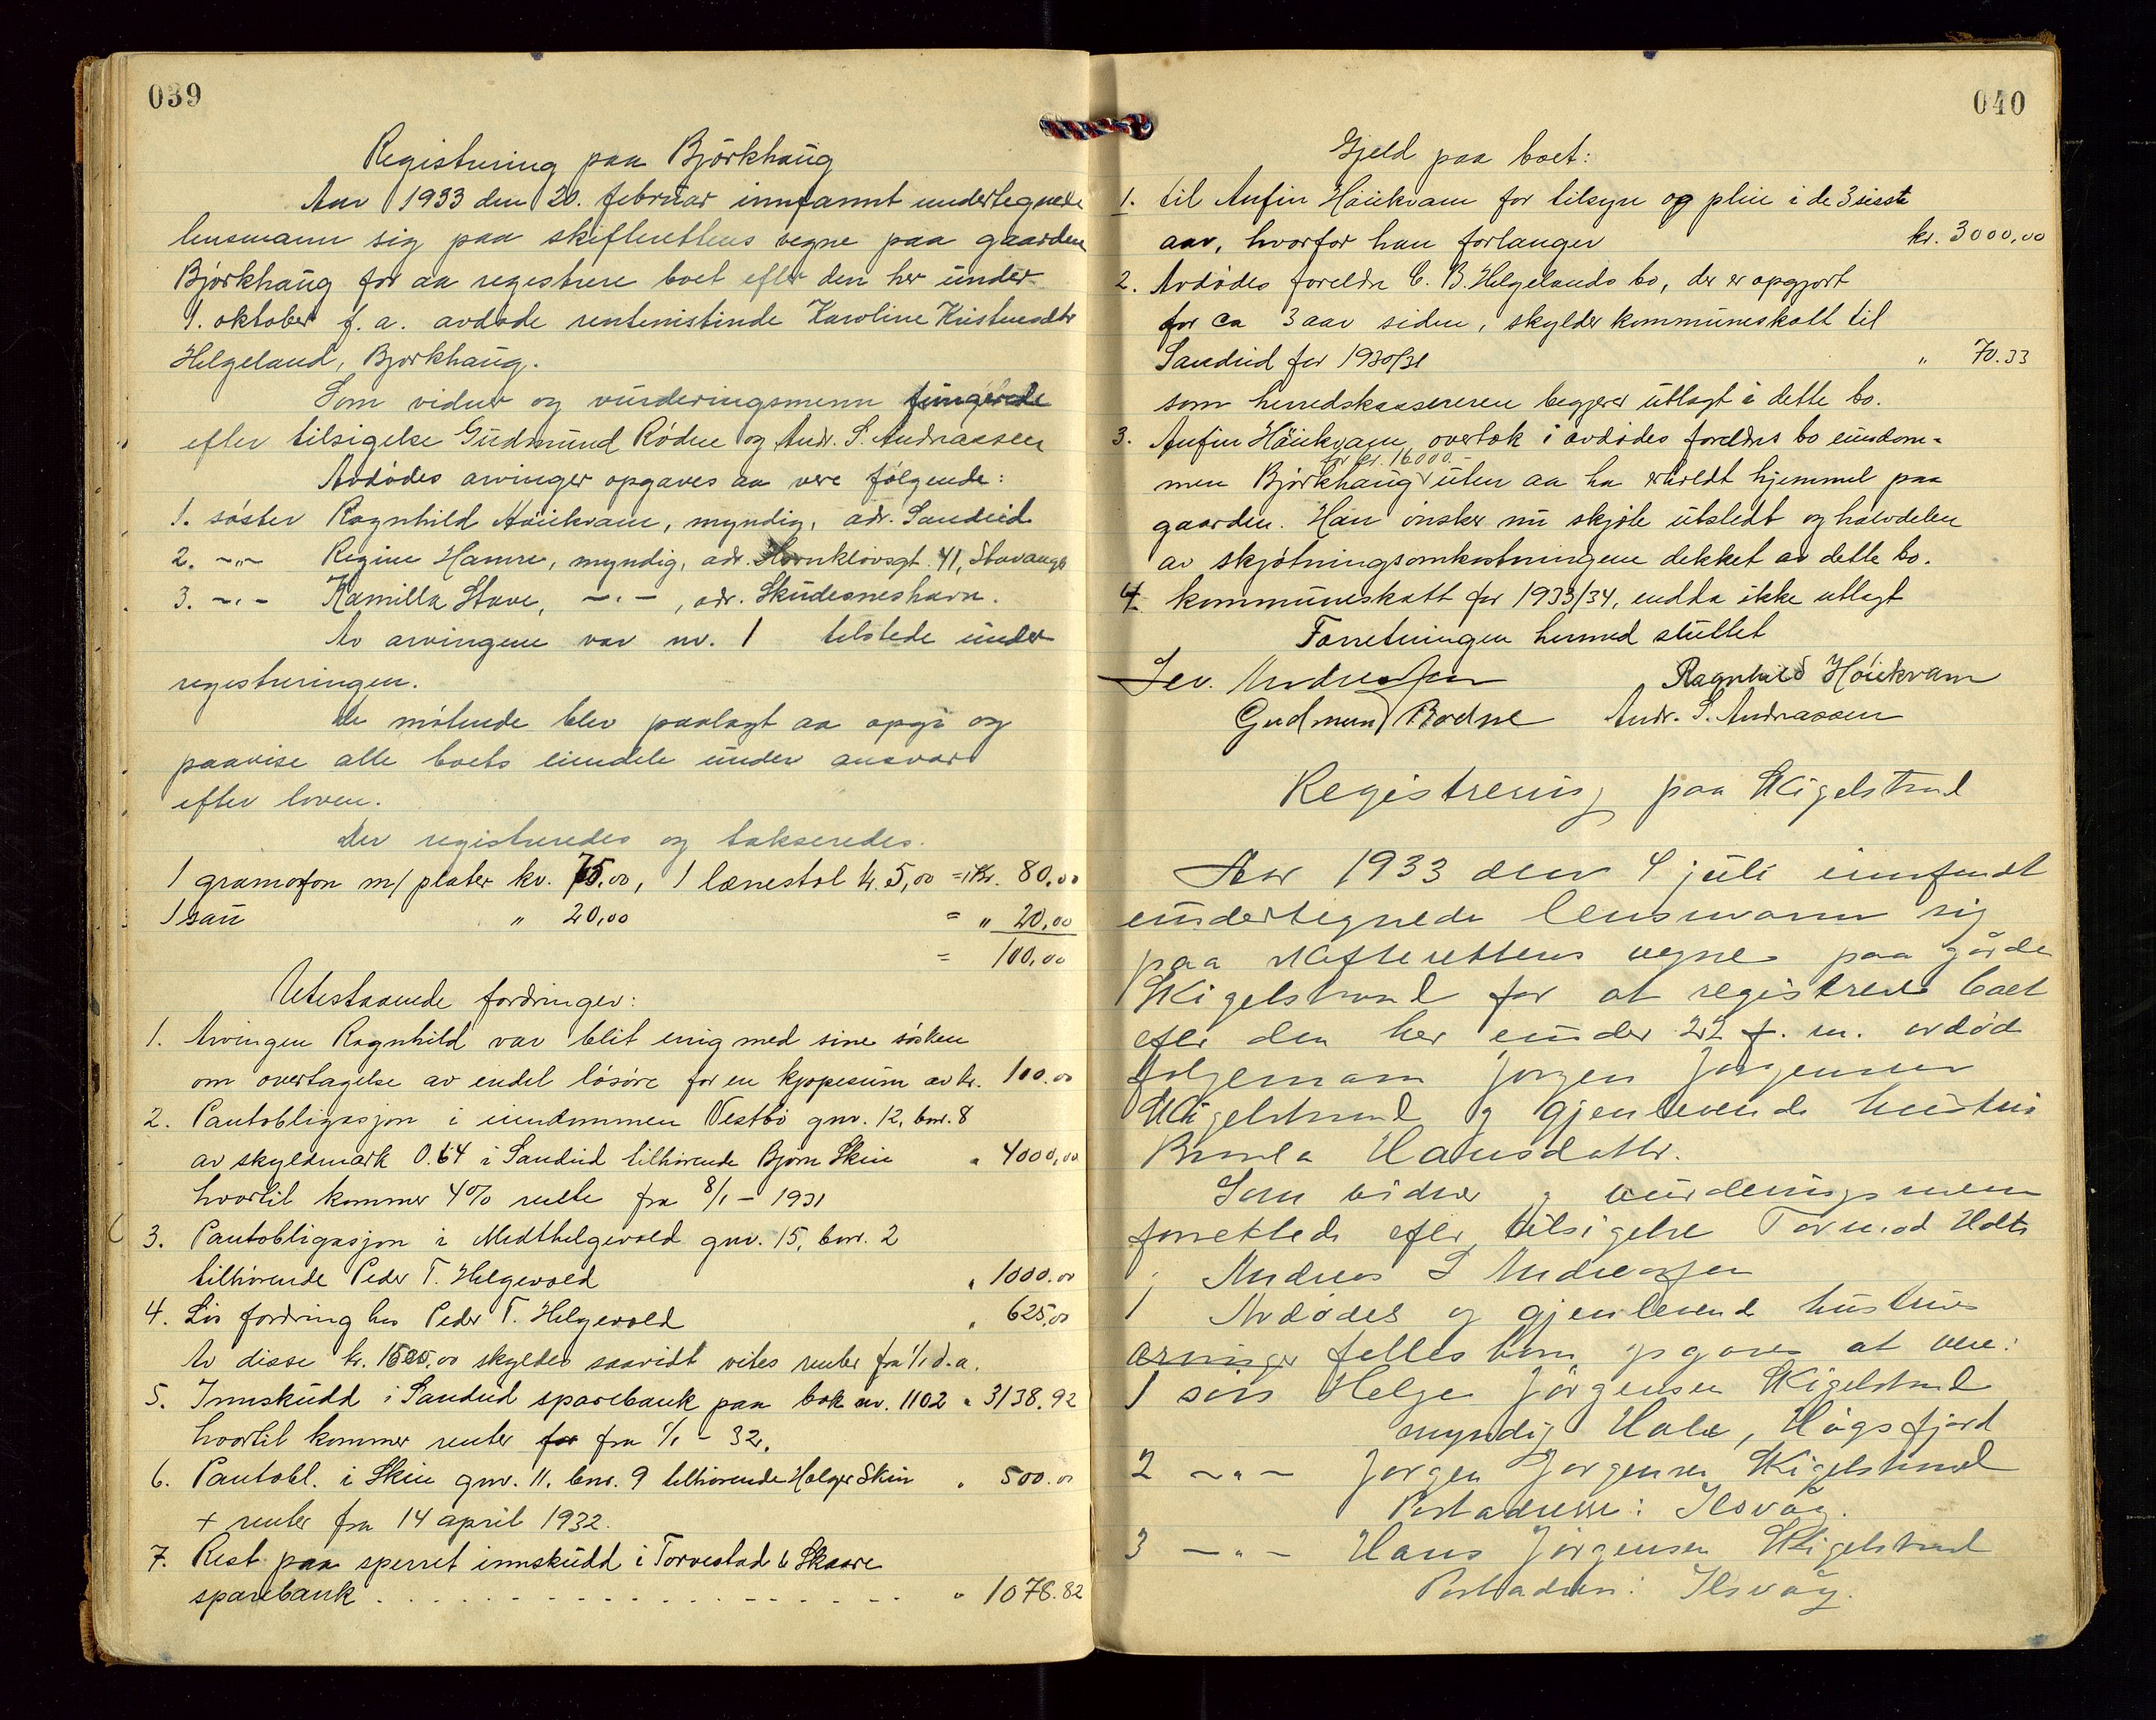 039
Registrering paa Björkhaug
Aar 1933 den 20. februar innfannt undertegnede
lensmann sig paa skifterettens vegne paa gaarden
Björkhaug for aa registrere boet efter den her under
1. oktober f. a. avdøde rentenistinde Karoline Kristensdtr
Helgeland, Bjorkhaug.
Som vidner og vurderingsmenn fungerede
efter tilsigelse Gudmund Rödne og Andr. S. Andreassen
Avdödes arvinger opgaves aa vere følgende:
1. söster Ragnhild Höiekvam, myndig, adr. Sandeid
2. -"- Regine Hamre, myndig, adr. Hornklovsgt. 41, Stavanger
3. -"- Kamilla Stave, -"-, adr. Skudesneshavn.
Av arvingene var nr. 1 tilstede under
registreringen.
De mötende blev paalagt aa opgi og
paavise alle boets eiendele under ansvar
efter loven.
Der registreredes og takseredes.
1 gramofon m/ plater kr. 75,00, 1 lænestol kr. 5,00 = kr. 80,00
1 sau " 20,00 = " 20,00
= 100,00
Utestaaende fordringer:
1. Arvingen Ragnhild var blit enig med sine sösken
om overtagelse av endel lösöre for en kjøpesum av kr. 100.00
2. Pantobligasjon i eiendommen Vestbö gnr. 12, bnr. 8
av skyldmark 0.64 i Sandeid tilhörende Björn Skeie " 4000,00
hvortil kommer 4% rente fra 8/1 - 1931
3. Pantobligasjon i Medthelgevold gnr. 15, bnr. 2
tilhörende Peder T. Helgevold " 1000.00
4. Lös fordring hos Peder T. Helgevold " 625,00
Av disse kr. 1625,00 skyldes saavidt vites renter fra 1/1 d.a.
5. Innskudd i Sandeid sparebank paa bok nr. 1102 " 3138.92
hvortil kommer renter for fra 1/1 - 32.
6. Pantobl. i Skeie gnr. 11, bnr. 9 tilhörende Holger Skeie " 500.00
+ renter fra 14 april 1932.
7. Rest paa sperret innskudd i Torvestad & Skaare
sparebank . . . . . . . . . . . . . . . . " 1078.82
040
Gjeld paa boet:
1. til Anfin Höiekvam for tilsyn og pleie i de 3 sisste
aar, hvorfor han forlanger kr. 3000,00
2. Avdödes foreldre C. B. Helgelands bo, der er opgjort
for ca 3 aar siden, skylder kommuneskatt til
Sandeid for 1930/31 " 70.33
som herredskassereren begjerer utlagt i dette bo.
3. Anfin Höiekvam overtok i avdödes foreldres bo eiendom-
for kr. 16000.-
men Björkhaug uten aa ha erholdt hjemmel paa
gaarden. Han önsker nu skjöte utstedt og halvdelen
av skjötningsomkostningene dekket av dette bo.
4. kommuneskatt for 1933/34, endda ikke utlagt
Forretningen hermed sluttet
Sev. Andreassen Ragnhild Höiekvam
Gudmund Rodne Andr. S. Andreassen
Registrering paa Kigelstrand
Aar 1933 den 4 juli innfandt
undertegnede lensmann sig
paa skifterettens vegne paa gårde
Kigelstrand for at registrere boet
efter den her under 22 f. m. avdöd
Jørgen Jørgensen
Kigelstrand og gjenlevende hustru
Hansdattr.
Som vidner og vurderingsmenn
forrettede efter tilsigelse Tormod Holta
Andreas S Andreassen
Avdödes og gjenlevende hustrus
arvinger felles barn opgaves at vere:
1 sön Helge Jörgensen Kigelstrand
myndig Hale, Högsfjord
2 -"- Jørgen Jørgensen Kigelstrand
Postadresse: Ilsvåg.
3 -"- Hans Jörgensen Kigelstrand
Postadress: Ilsvåg.